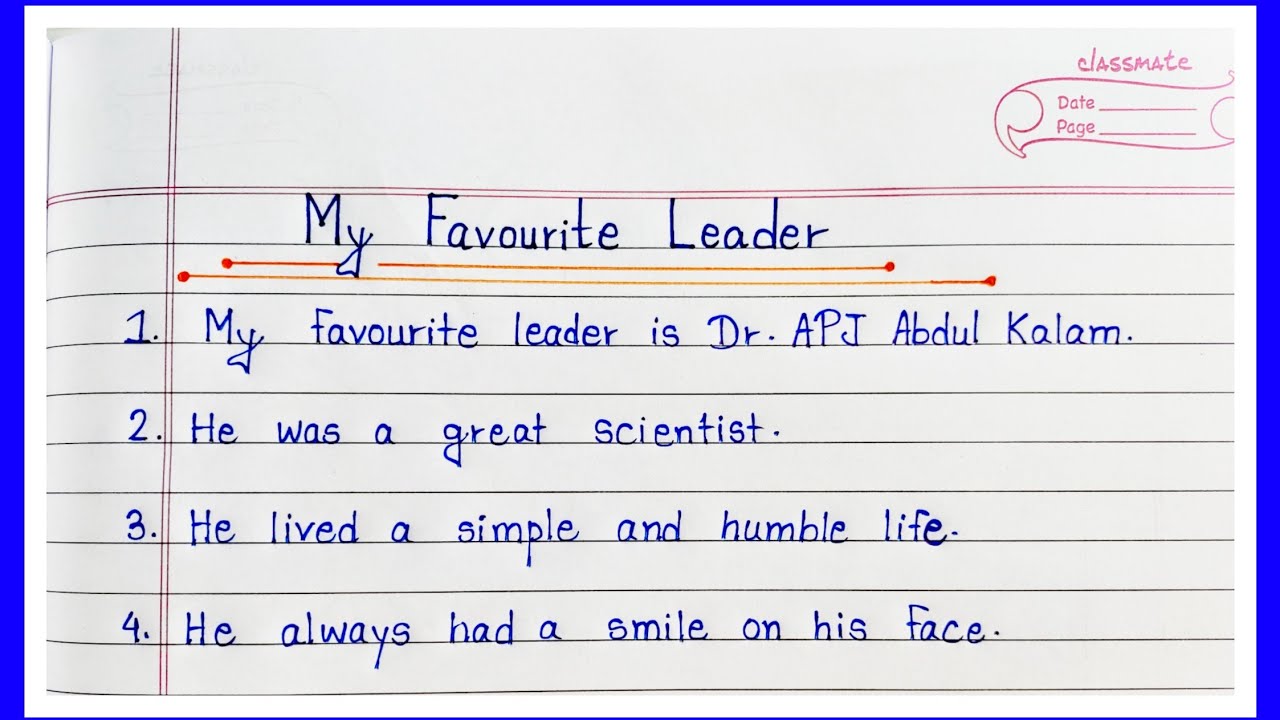 classmate
Date
Page
My Favourite Leader
1. My favourite leader is Dr. APJ Abdul Kalam.
2. He was a great scientist.
3. He lived a simple and humble life.
4. He always had a smile on his face.